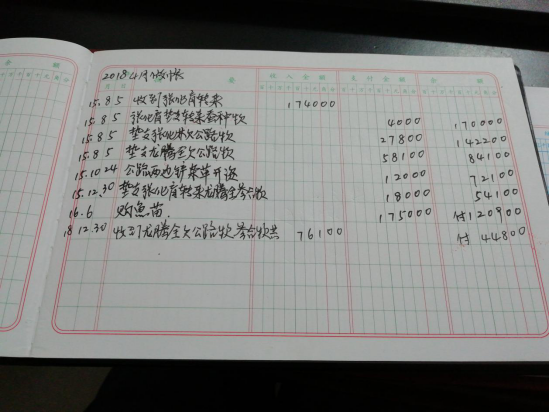 2018年4月做帐
收入金额 支付金额 余额
15.8.5 收到张化育转来 174000
15.8.5 张化育垫支转来 4000 170000
15.8.5 垫支张化 欠公路 27800 142200
15.8.5 垫支龙腾全欠公路 58100 84100
15.10.24 公路两边铲杂草开 12000 72100
15.12.30 垫支张化育转来龙腾全 18000 54100
16.6 购鱼苗. 175000 付120900
18 12.30 收到龙腾全欠公路 76100 付 44800